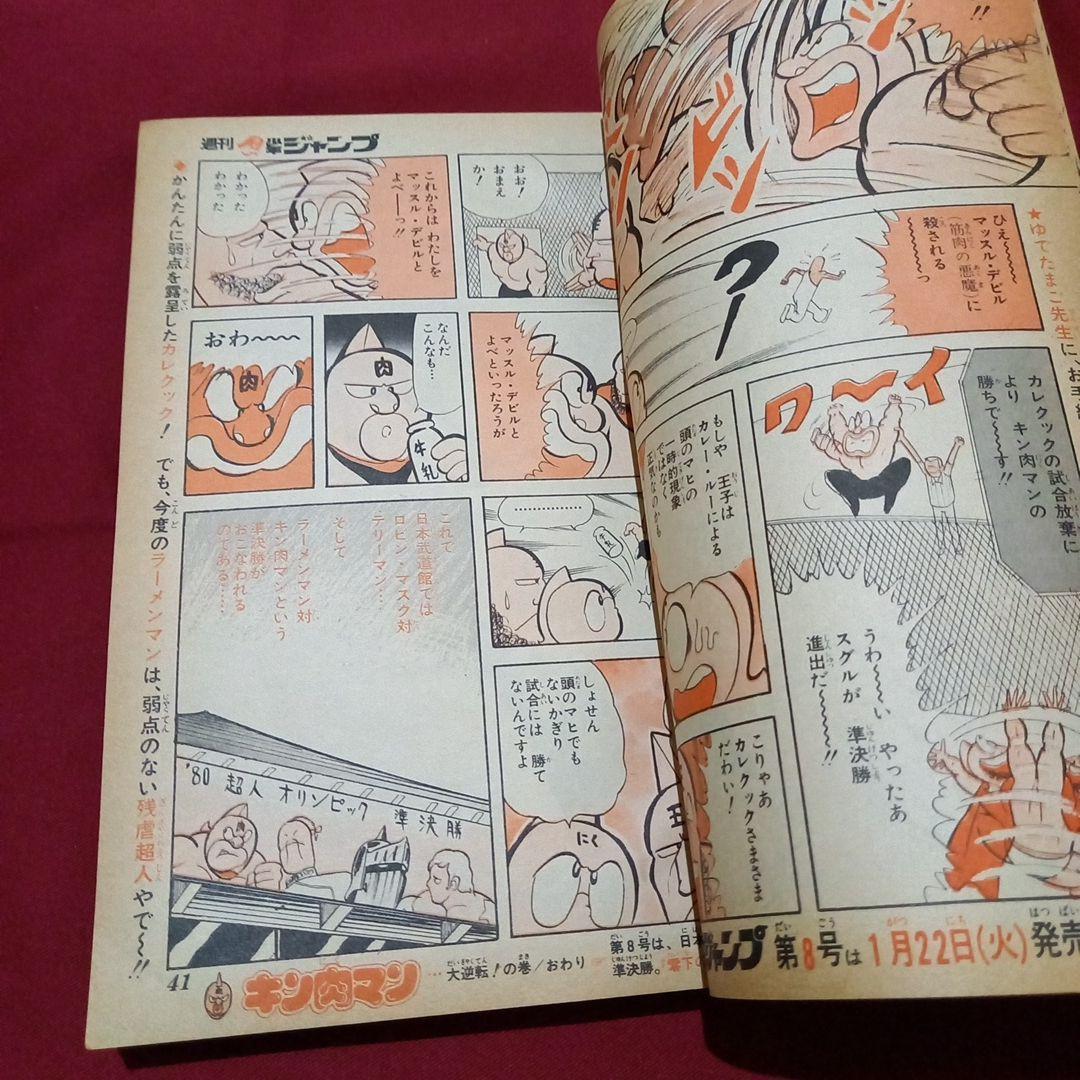 !!
ドドッ
ひえ〜〜〜
マッスル・デビル
(筋肉の悪魔)に
殺される
〜〜〜っ
ワー
★ゆでたまご先生にお
カレクックの試合放棄に
より キン肉マンの
勝ちで〜〜す!!
ワ〜イ
もしや 王子は
カレー・ルーによる
頭のマヒの
一時的現象
ではなく
正気なのかも
うわ〜〜い やったあ
スグルが 準決勝
進出だ〜〜〜!!
こりゃあ
カレクックさまさま
だわい!
ジャンプ 第8号は1月22日(火)発売
週刊少年ジャンプ
おお!
おまえ
か!
これからは わたしを
マッスル・デビルと
よべ——っ!!
わかった
わかった
マッスル・デビルと
よべといったろうが
なんだ
こんなも…
肉
牛乳
おわ〜〜〜
肉
……………
牛乳
これで
日本武道館では
ロビン・マスク対
テリーマン…
そして
ラーメンマン対
キン肉マンという
準決勝が
おこなわれる
のである……
'80 超人 オリンピック 準決勝
しょせん
頭のマヒでも
ないかぎり
試合には 勝て
ないんですよ
にく
王
◆かんたんに弱点を露呈したカレクック! でも、今度のラーメンマンは、弱点のない残虐超人やで〜!!
41
キン肉マン
…大逆転!の巻/おわり
第8号は、日本
準決勝。零下の